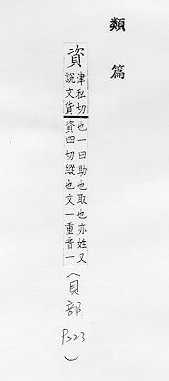 類篇
資
津私切
說文貨
也一曰助也取也亦姓又
資四切縱也文一重音一
(貝部 P223)